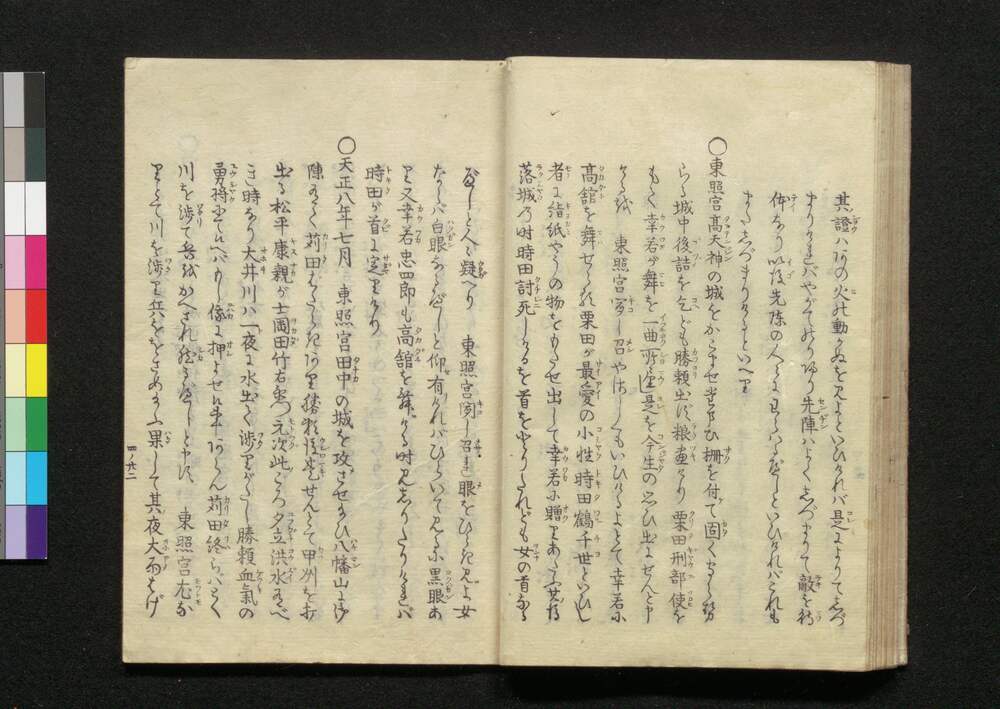 其證ハ向の火の動かぬを見よといひけれバ是によりてしづ
まりけれバやがてのりゆり先陣ハよくしづまりて敵を待
仲なり以後先陣の人々にわらハるべしといひけれバこれも
またしづまりけりといへり
〇東照宮高天神の城をかこませ玉ひ柵を付て固くまもら勢
らる城中後詰を乞ども勝頼出ず粮盡たり栗田刑部使を
もて幸若が舞を一曲所望是を今生の思ひ出にせんと申
ける 東照宮聞し召やさしくもいひけるよとて幸若に
高舘を舞せらる栗田が最愛の小性時田鶴千世といひし
者に絹紙やうの物をもたせ出して幸若に贈りあたへける
落城の時時田討死しけるを首をとりたれども女の首なる
べしと人々疑へり 東照宮聞し召まし眼をひらき見よ女
ならバ白眼なるべしと仰有けれバひらいて見るに黒眼あ
り又幸若忠四郎も高舘を舞ける時見しりたりけれバ
時田が首に定りけり
〇天正八年七月 東照宮田中の城を攻させ玉ひ八幡山に御
陣有て苅田はたらきあり勝頼後巻せんとて甲州を打
出る松平康親が士岡田竹右衛門元次此ころ夕立洪水すべ
き時なり大井川ハ一夜に水出て渉りがたし勝頼血氣の
勇将にて候へバもし俄に押よせ候事あらん苅田終らバとく
川を渉て兵をかへされ然るべしと申す 東照宮尤な
りとて川を渉り兵ををさめ玉ふ果して其夜大雨しげ
四ノ六二